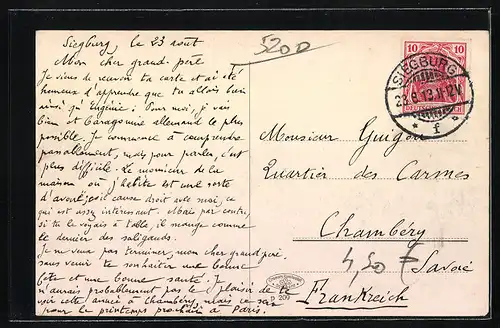 Siegburg, le 23 août
520D
Mon cher grand-père
Je viens de recevoir ta carte et ai été
heureux d'apprendre que tu allais bien
ainsi qu'Eugénie. Pour moi, je vais
bien et baragouine allemand le plus
possible. Je commence à comprendre
passablement, mais pour parler, c'est
plus difficile. Le monsieur de la
maison où j'habite est une sorte
d'avoué, je cause droit avec moi, ce
qui est assez intéressant. Mais par contre,
si tu le voyais à table, il mange comme
le dernier des saligauds.
Je ne veux pas terminer, mon cher grand père,
sans venir te souhaiter une bonne
fête et une bonne santé. Je
n'aurais probablement pas le plaisir de te
voir cette année à Chambéry, mais ce sera
pour le printemps prochain à Paris.
10 10
DEUTSCHES REICH
SIEGBURG
23.8.13.11-12V.
* f
Monsieur Guigon
Quartier des Carmes
Chambéry
4,50
Savoie
Frankreich
D 209